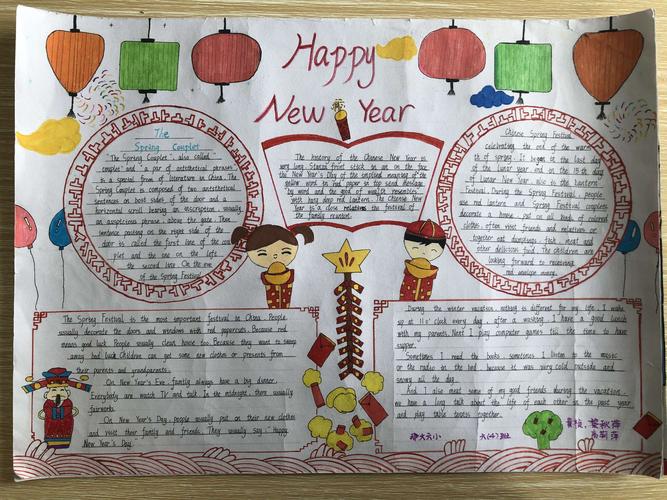 Happy
New Year
The
Spring Couplet
"The Spring Couplet" also called
couplet" and a pair of antithetical phrases
is a special from of literature in China. The
Spring Couplet is composed of two antithetical
sentences on boat sides of the door and a
horizontal scroll bearing an inscription, usually
an auspicious phrase, above the gate. Then
sentence pasting on the right side of the
door is called the first line of the cou
plet and the one on the left
the second line. On the eve
of the Spring Festival
The history of the Chinese New Year is
very long. Stanza first stick in on the for
the New Year's Day of the emplood meaning of the
yellow word on Red paper to send message
by word and the good of wealth resembles
with hang deep red lantern. The Chinese
Year is a close relatins the festival of
the family reunion.
Chinese Spring Festival
celebrating the end of the warm
th of spring. It began at the last day
of the lunar year end in the 15 th day
of lunar New Year also is the Lantern
Festival. During the Spring Festival, people
use red lantern and Spring Festival couplets
decorate a house put on all kinds of colored
clothes, often visit friends and relatives or
together eat dumplings, fish, meat and
other delicious food. The children are
looking forward to receiving
red envelope money.
The Spring Festival is the most important festival in China. People
usually decorate the doors and windows with red papercuts. Because red
means good luck. People usually clean house too. Because they want to sweep
away bad luck. Children can get some new clothes or presents from
their parents and grandparents.
On New Year's Eve, family always have a big dinner.
Everybody are watch TV and talk. In the midnight, there usually
fairworks.
On New Year's Day, people usually put on their new clothes
and visit their family and friends. They usually say: "Happy
New Year's Day."
During the winter vacation, nothing is different for my life. I wake
up at 11 o' clock every day, after a washing, I have a good lunch
with my parents. Next I play computer games till the time to have
supper.
Sometimes I read the books, sometimes I listen to the music
or the radio in the bed because it was very cold outside and
snowy all the day.
And I also meet some of my good friends during the vacation.
we have a long talk about the life of each other in the past year
and play table tennis together.
六(4)班